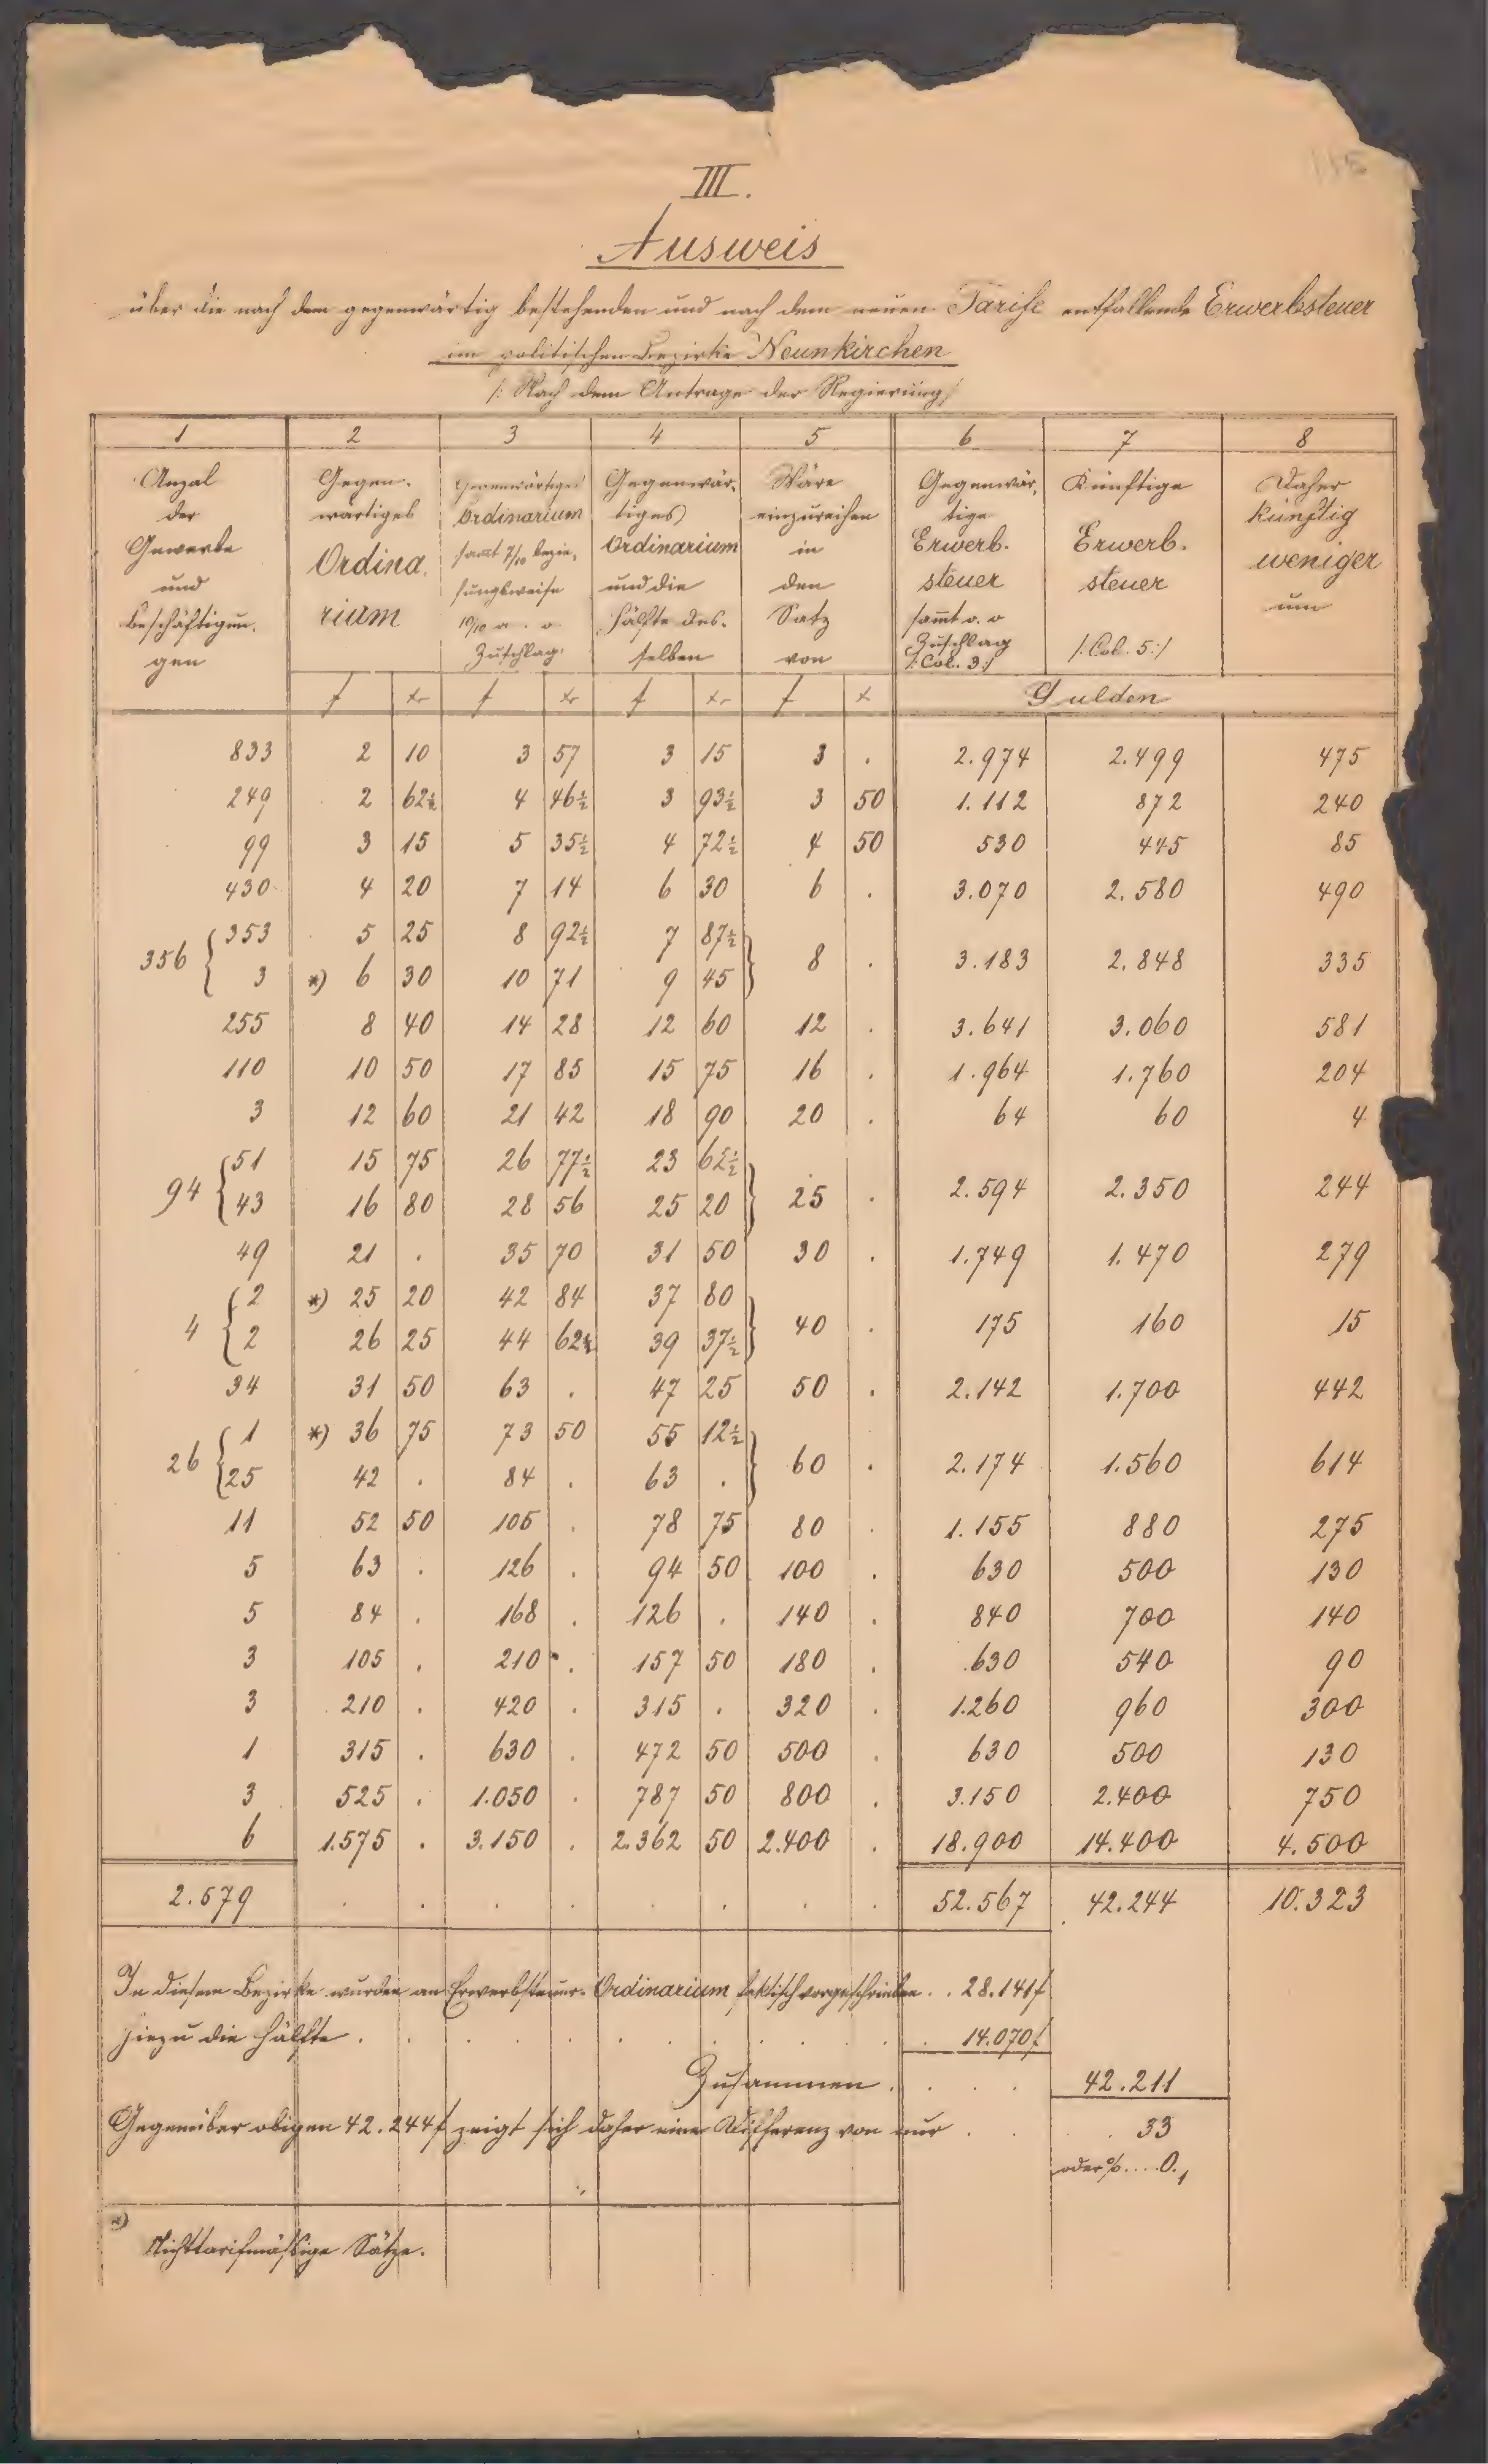 III.
Ausweis
über die nach dem gegenwärtig bestehenden und nach dem neuen Tarife entfallende Erwerbsteuer
im politischen Bezirke Neunkirchen
/: Nach dem Antrage der Regierung :/
1 2 3 4 5 6 7 8
Anzal Gegen- Gegenwärtiges Gegenwär- Wäre Gegenwär- Künftige Daher
der wärtiges Ordinarium tiges einzureihen tige künftig
Gewerbe Ordina- samt 7/10 bezie- Ordinarium in Erwerb- Erwerb- weniger
und hungsweise und die den steuer steuer um
Beschäftigun- rium 10/10 a. o. Hälfte des- Satz samt a. o
gen Zuschlag selben von Zuschlag /: Col. 3 :/ /: Col. 5 :/
f xr f xr f xr f x Gulden
833 2 10 3 57 3 15 3 . 2.974 2.499 475
249 2 62½ 4 46½ 3 93½ 3 50 1.112 872 240
99 3 15 5 35½ 4 72½ 4 50 530 445 85
430 4 20 7 14 6 30 6 . 3.070 2.580 490
353 5 25 8 92½ 7 87½
356 8 . 3.183 2.848 335
3 *) 6 30 10 71 9 45
255 8 40 14 28 12 60 12 . 3.641 3.060 581
110 10 50 17 85 15 75 16 . 1.964 1.760 204
3 12 60 21 42 18 90 20 . 64 60 4
51 15 75 26 77½ 23 62½
94 25 . 2.594 2.350 244
43 16 80 28 56 25 20
49 21 . 35 70 31 50 30 . 1.749 1.470 279
2 *) 25 20 42 84 37 80
4 40 . 175 160 15
2 26 25 44 62½ 39 37½
34 31 50 63 . 47 25 50 . 2.142 1.700 442
1 *) 36 75 73 50 55 12½
26 60 . 2.174 1.560 614
25 42 . 84 . 63 .
11 52 50 105 . 78 75 80 . 1.155 880 275
5 63 . 126 . 94 50 100 . 630 500 130
5 84 . 168 . 126 . 140 . 840 700 140
3 105 . 210 . 157 50 180 . 630 540 90
3 210 . 420 . 315 . 320 . 1.260 960 300
1 315 . 630 . 472 50 500 . 630 500 130
3 525 . 1.050 . 787 50 800 . 3.150 2.400 750
6 1.575 . 3.150 . 2.362 50 2.400 . 18.900 14.400 4.500
2.579 . . . . . . . . 52.567 42.244 10.323
In diesem Bezirke wurden an Erwerbsteuer-Ordinarium faktisch vorgeschrieben . . 28.141 f
hiezu die Hälfte . . . . . . . . 14.070 f
Zusammen . . . . 42.211
Gegenüber obigen 42.244 f zeigt sich daher eine Differenz von nur . . . 33
oder % .... 0.1
*)
Nichttarifmäßige Sätze.